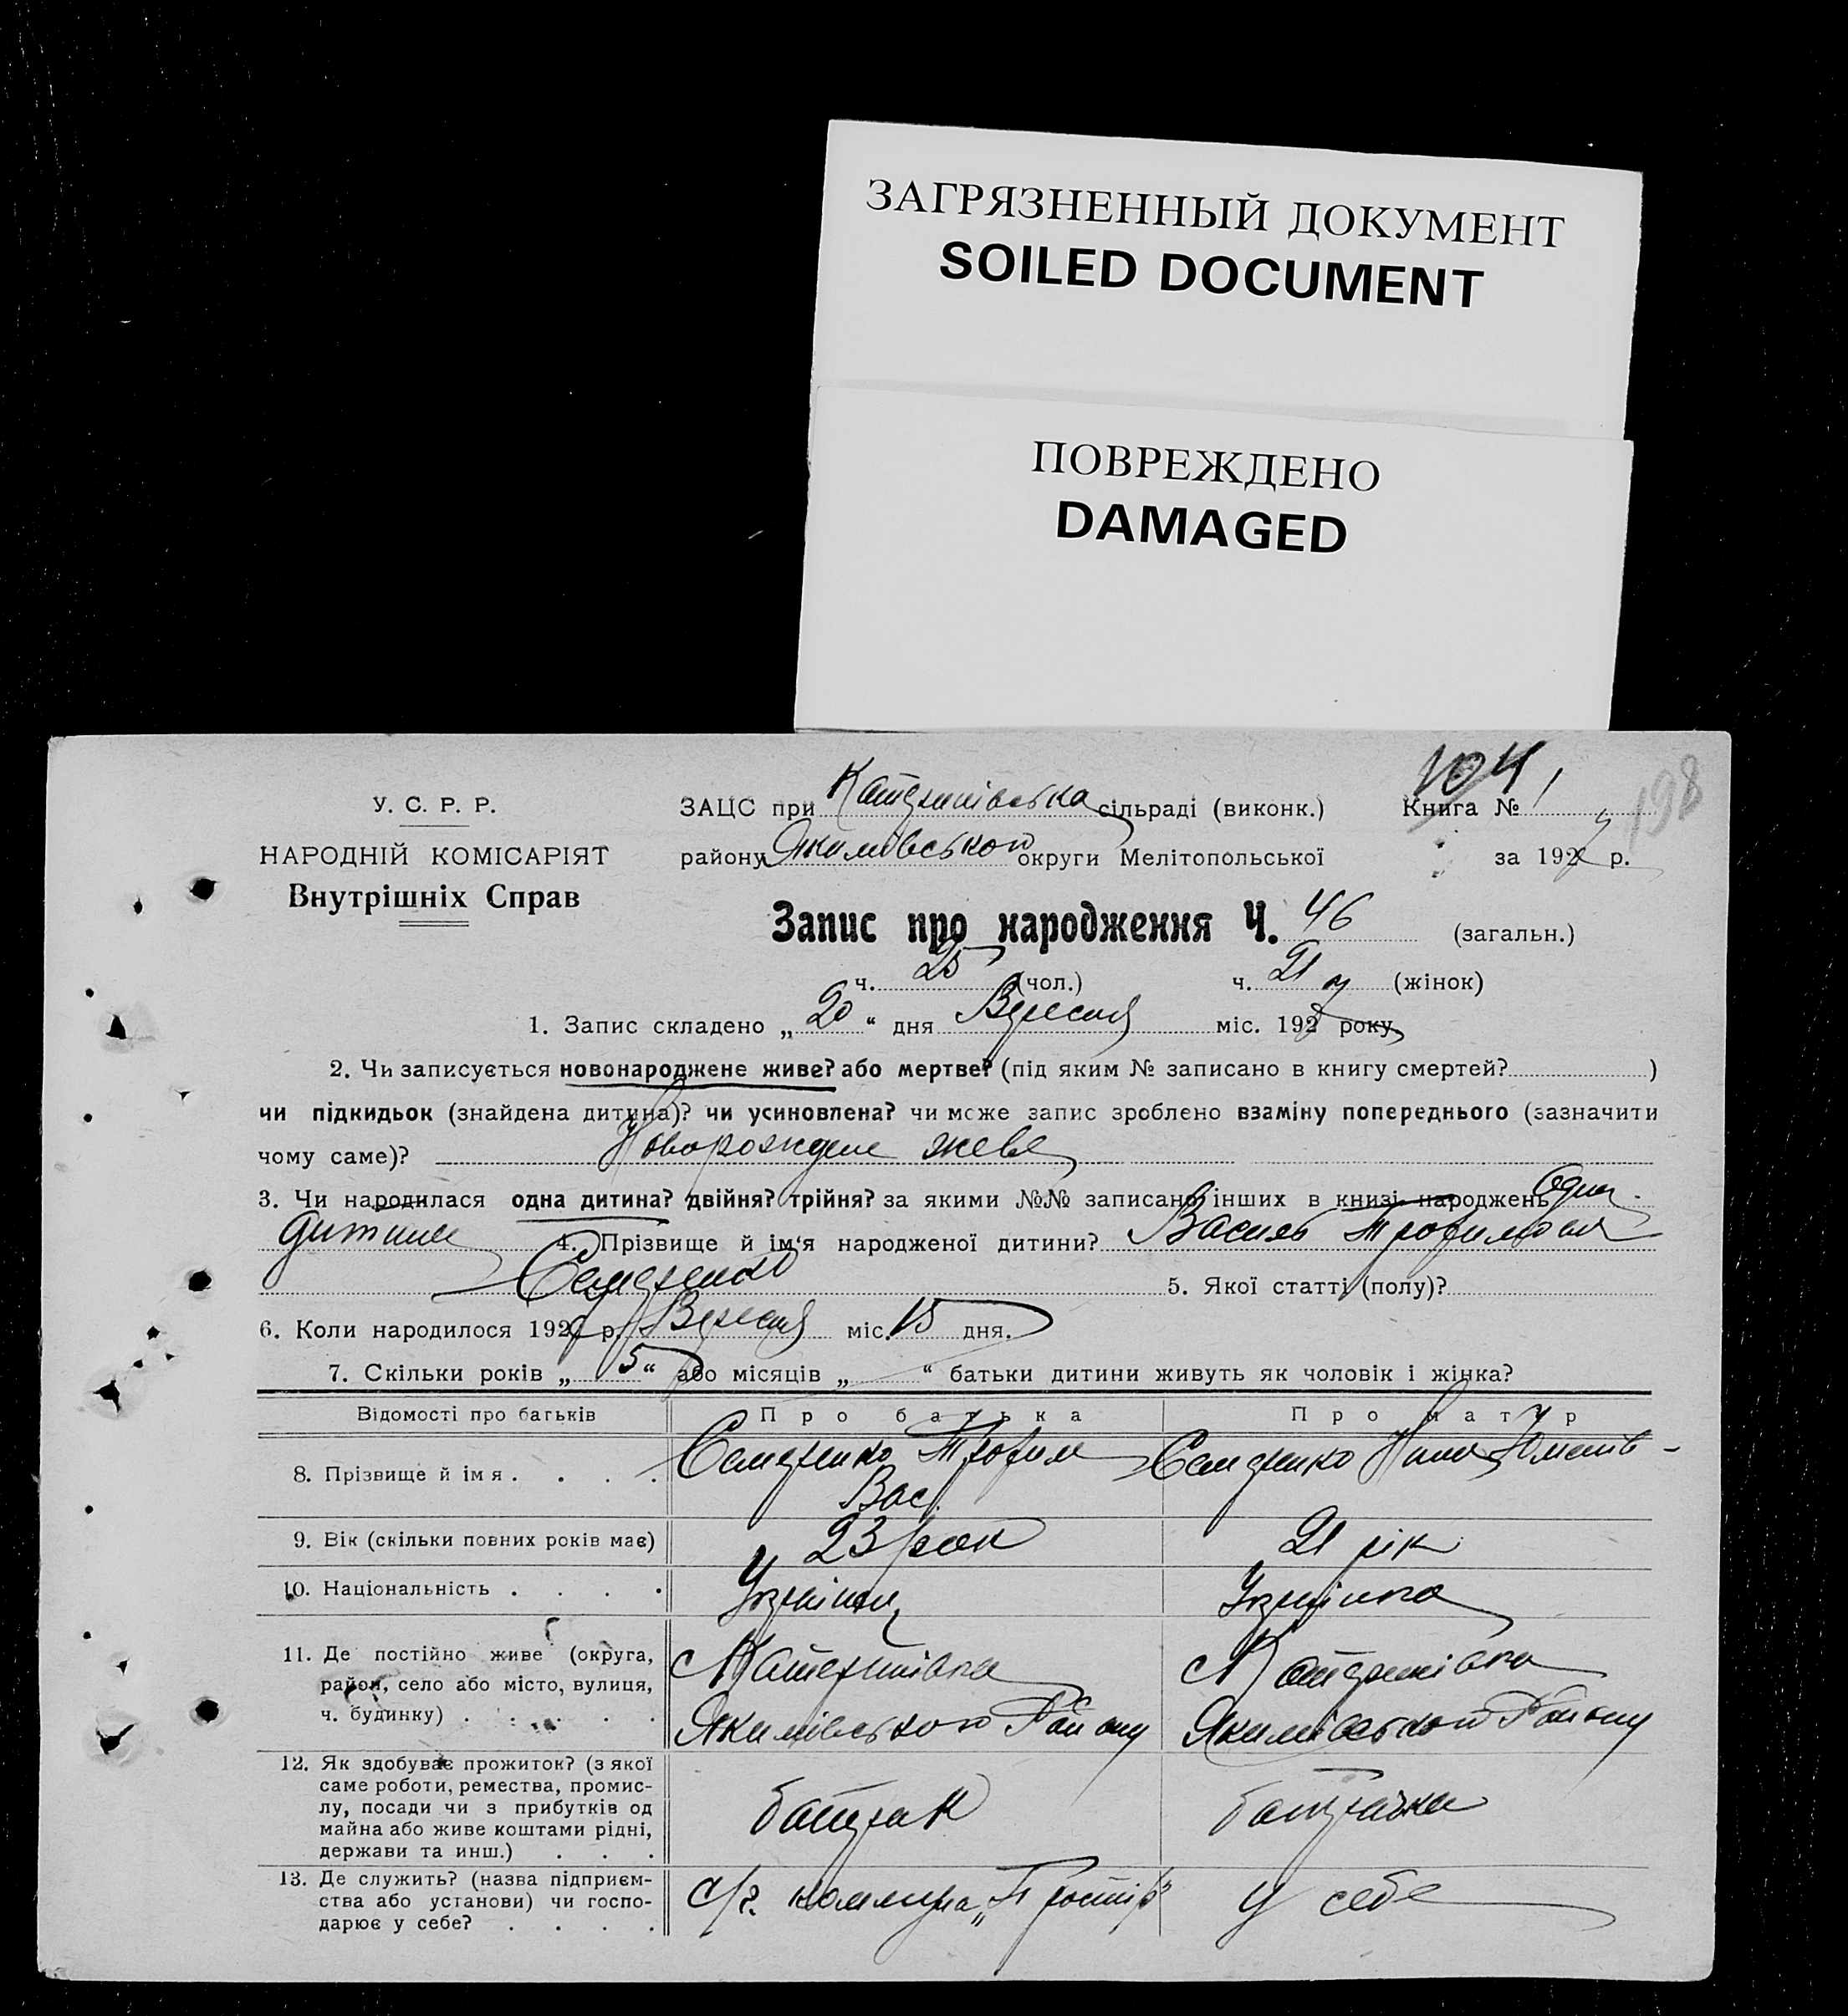 ЗАГРЯЗНЕННЫЙ ДОКУМЕНТ
SOILED DOCUMENT
ПОВРЕЖДЕНО
DAMAGED
104
198
У. С. Р. Р.
НАРОДНІЙ КОМІСАРІЯТ
Внутрішніх Справ
ЗАЦС при Катеринівська сільраді (виконк.) Книга № 1
району Якимівського округи Мелітопольської за 192 р.
Запис про народження Ч. 46 (загальн.)
ч. 25 (чол.) ч. 21 (жінок)
1. Запис складено „ 20 “ дня Вересня міс. 192 року
2. Чи записується новонароджене живе? або мертве? (під яким № записано в книгу смертей? )
чи підкидьок (знайдена дитина)? чи усиновлена? чи може запис зроблено взаміну попереднього (зазначити
чому саме)? Новорождене живе
3. Чи народилася одна дитина? двійня? трійня? за якими №№ записано інших в книзі народжень Одна
дитина 4. Прізвище й ім'я народженої дитини? Василь Трофимович
Семеренко 5. Якої статті (полу)?
6. Коли народилося 192 р. Вересня міс. 15 дня.
7. Скільки років „ 5 “ або місяців „ “ батьки дитини живуть як чоловік і жінка?
Відомості про батьків Про батька Про матір
8. Прізвище й імя . . . . Семеренко Трофим Вас. Семеренко
9. Вік (скільки повних років має) 23 рок 21 рік
10. Національність . . . . Українец Українка
11. Де постійно живе (округа,
район, село або місто, вулиця,
ч. будинку) . . . . .
с Катеринівка с Катеринівка
Якимівського Району Якимівського Району
12. Як здобуває прожиток? (з якої
саме роботи, ремества, промис-
лу, посади чи з прибутків од
майна або живе коштами рідні,
держави та инш.) . . .
батрак батрачка
13. Де служить? (назва підприєм-
ства або установи) чи госпо-
дарює у себе? . . . .
с/г. коммуна „Простір“ у себе